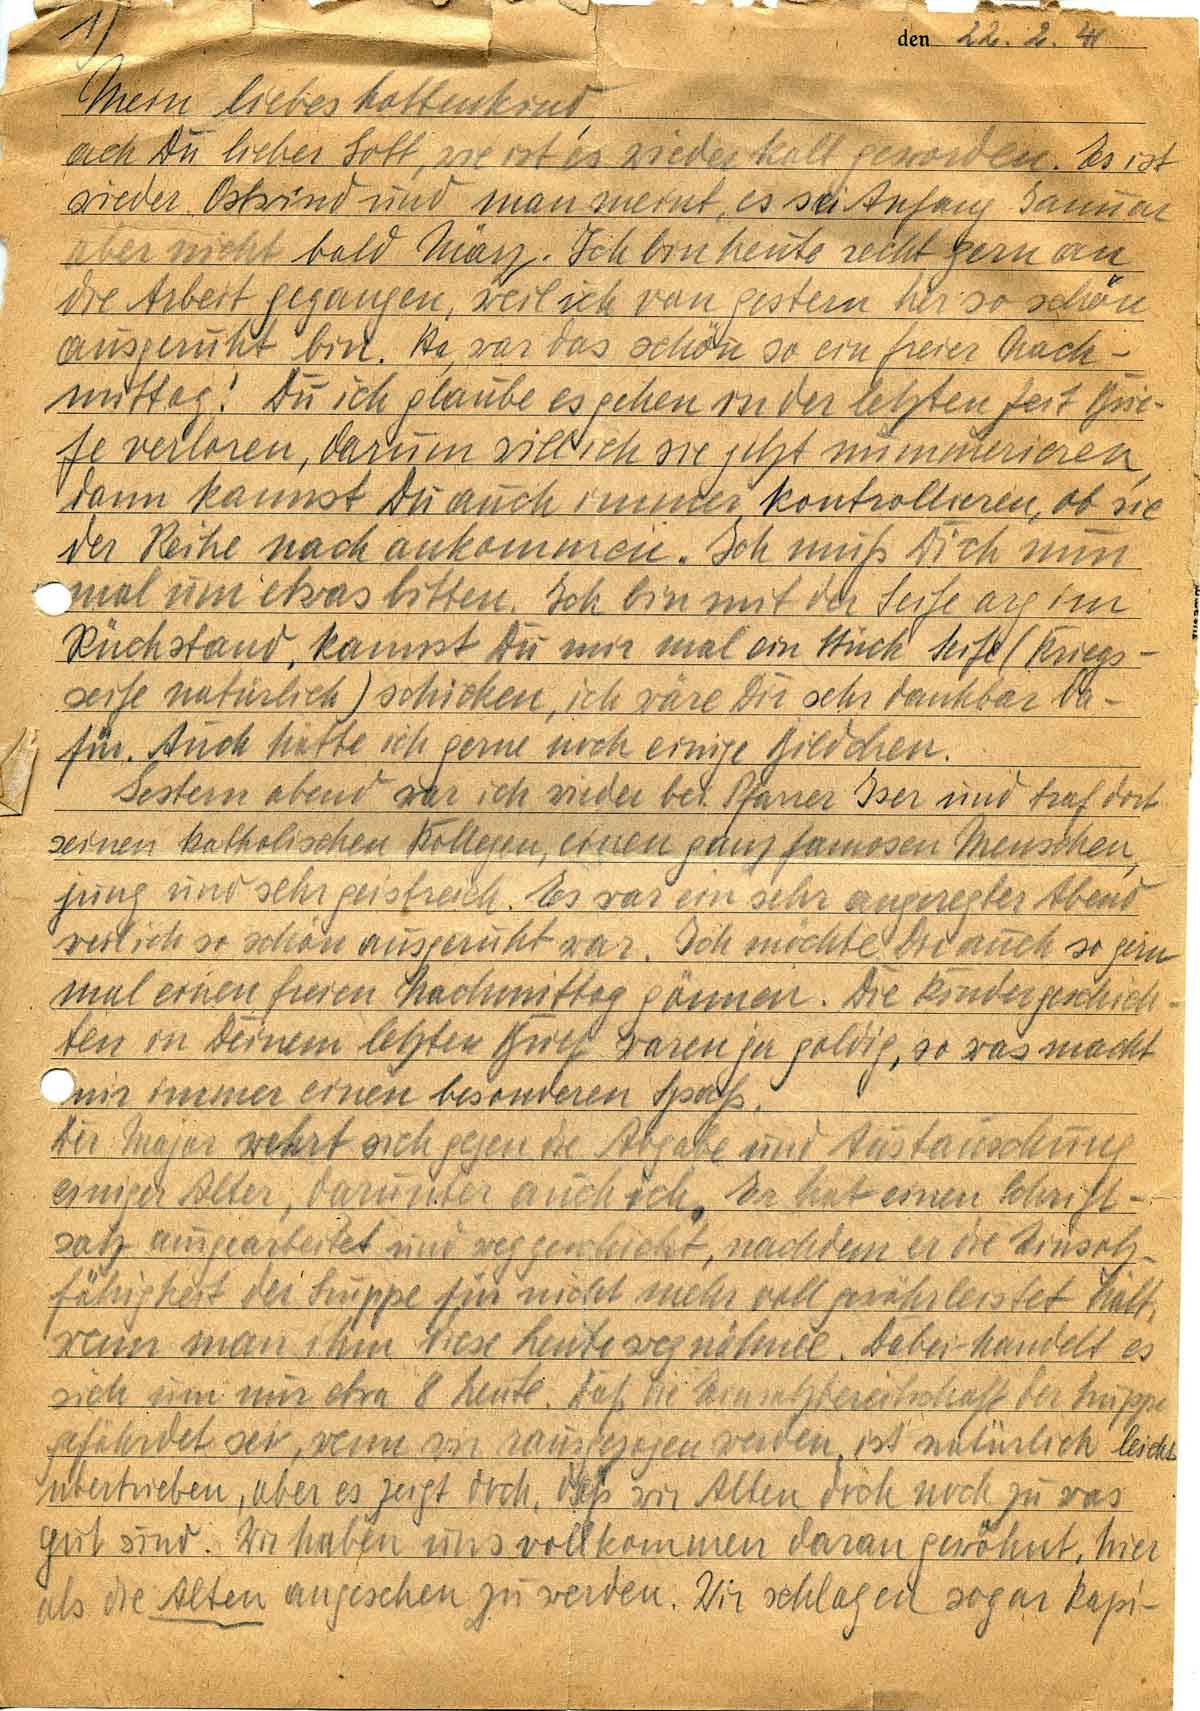 1)
den 22. 2. 41
Mein liebes Lottenkind,
ach Du lieber Gott, wie ist es wieder kalt geworden. Es ist
wieder Ostwind und man meint, es sei Anfang Januar
aber nicht bald März. Ich bin heute recht gern an
die Arbeit gegangen, weil ich von gestern her so schön
ausgeruht bin. Ha, war das schön so ein freier Nach-
mittag! Du ich glaube es gehen in der letzten Zeit Brie-
fe verloren, darum will ich sie jetzt nummerieren,
dann kannst Du auch immer kontrollieren, ob sie
der Reihe nach ankommen. Ich muß Dich nun
mal um etwas bitten. Ich bin mit der Seife arg im
Rückstand, kannst Du mir mal ein Stück Seife (Kriegs-
seife natürlich) schicken, ich wäre Dir sehr dankbar da-
für. Auch hätte ich gerne noch einige Bildchen.
Gestern abend war ich wieder bei Pfarrer Iser und traf dort
seinen katholischen Kollegen, einen ganz famosen Menschen,
jung und sehr geistreich. Es war ein sehr angeregter Abend
weil ich so schön ausgeruht war. Ich möchte Dir auch so gern
mal einen freien Nachmittag gönnen. Die Kindergeschich-
ten in Deinem letzten Brief waren ja goldig, so was macht
mir immer einen besonderen Spaß.
Der Major wehrt sich gegen die Abgabe und Austauschung
einiger Alter, darunter auch ich. Er hat einen Schrift-
satz ausgearbeitet und weggeschickt, nachdem er die Einsatz-
fähigkeit der Gruppe für nicht mehr voll gewährleistet hält,
wenn man ihm diese Leute wegnähme. Dabei handelt es
sich um nur etwa 8 Leute. Daß die Einsatzbereitschaft der Gruppe
gefährdet sei, wenn wir rausgezogen werden, ist natürlich leicht
übertrieben, aber es zeigt doch, daß wir Alten doch noch zu was
gut sind. Wir haben uns vollkommen daran gewöhnt, hier
als die Alten angesehen zu werden. Wir schlagen sogar Kapi-